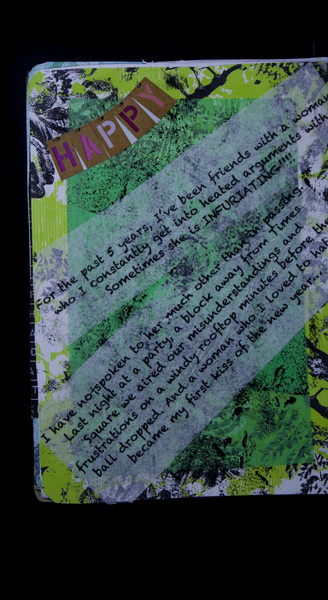 HAPPY
For the past 5 years, I've been friends with a woman
who I constantly get into heated arguments with
Sometimes she is INFURIATING!!!!
I have not spoken to her much other than in passing.
Last night at a party, a block away from Times
Square we aired our misunderstandings and
frustrations on a windy rooftop minutes before the
ball dropped. And a woman who I loved to ha
became my first kiss of the new year